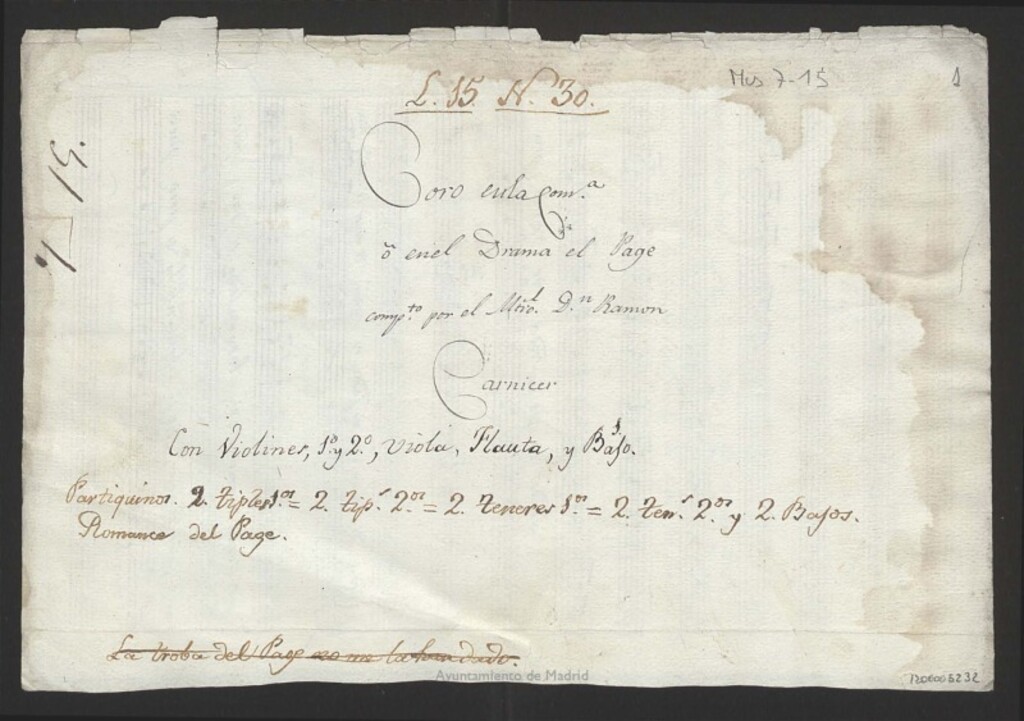 L. 15. N. 30.
Mus 7-15
1
7-15.
Coro en la Com.a
ō en el Drama el Page
comp.to por el Mtro. D.n Ramon
Carnicer
Con Violines, 1º y 2º, Viola, Flauta, y Bajo.
Partiquinos. 2. tiples 1.os = 2. tip.s 2.os = 2. teneres 1.os = 2. ten.s 2.os y 2. Bajos.
Romance del Page.
La troba del Page no me la han dado.
Ayuntamiento de Madrid
1200005232